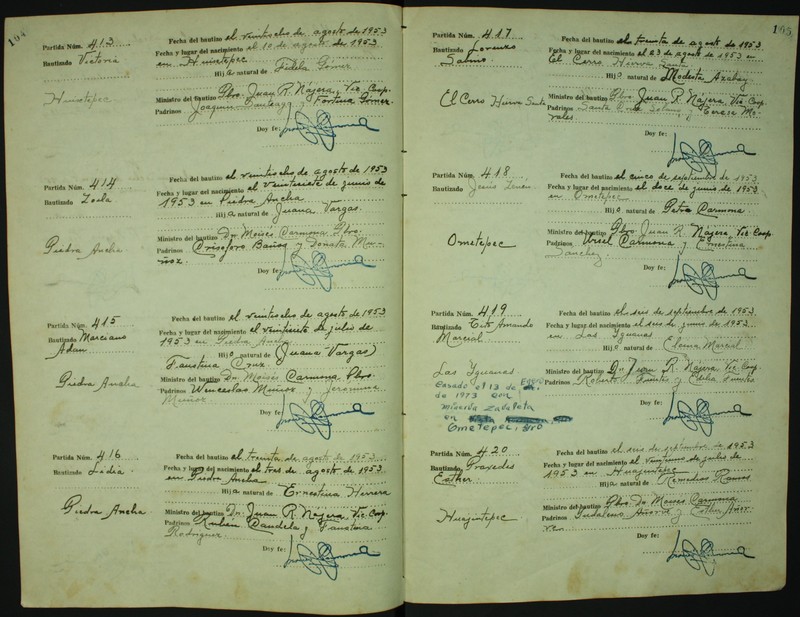 104
Partida Núm. 413
Bautizado Victoria
Huistepec
Fecha del bautizo el veintiocho de agosto de 1953
Fecha y lugar del nacimiento el 10 de agosto de 1953
en Huistepec
Hija natural de Fidela Gómez
Ministro del bautizo Pbro. Juan R. Nájera, Vic. Coop.
Padrinos Joaquín y Fortina Gómez.
Doy fe:
Partida Núm. 414
Bautizado Zoila
Piedra Ancha
Fecha del bautizo el veintiocho de agosto de 1953
Fecha y lugar del nacimiento el veintisiete de junio de
1953 en Piedra Ancha
Hija natural de Juana Vargas.
Ministro del bautizo Dr. Moisés Carmona, Pbro.
Padrinos Crisóforo Baños y Donata Mu-
ñoz.
Doy fe:
Partida Núm. 415
Bautizado Marciano
Adan
Piedra Ancha
Fecha del bautizo el veintiocho de agosto de 1953
Fecha y lugar del nacimiento el veintisiete de julio de
1953 en Piedra Ancha
Hijo natural de (Juana Vargas)
Faustina Cruz
Ministro del bautizo Dr. Moisés Carmona, Pbro.
Padrinos Wenceslao Muñoz y Jerónima
Muñoz
Doy fe:
Partida Núm. 416
Bautizado Lidia.
Piedra Ancha
Fecha del bautizo el treinta de agosto de 1953
Fecha y lugar del nacimiento el tres de agosto de 1953
en Piedra Ancha
Hija natural de Ernestina Herrera
Ministro del bautizo Dr. Juan R. Nájera, Vic. Coop.
Padrinos Rubén Candela y
Rodríguez
Doy fe:
105
Partida Núm. 417
Bautizado Lorenzo
Sabino
El Cerro Hierva Santa
Fecha del bautizo el treinta de agosto de 1953
Fecha y lugar del nacimiento el 23 de agosto de 1953 en
El Cerro Hierva Santa
Hijo natural de Modesta
Ministro del bautizo Pbro. Juan R. Nájera, Vic. Coop.
Padrinos Santa y Teresa Mo-
rales
Doy fe:
Partida Núm. 418
Bautizado Jesús
Ometepec
Fecha del bautizo el cinco de septiembre de 1953.
Fecha y lugar del nacimiento el doce de junio de 1953
en Ometepec
Hijo natural de Petra Carmona
Ministro del bautizo Pbro. Juan R. Nájera, Vic. Coop.
Padrinos Uriel Carmona y Ernestina
Sanchez.
Doy fe:
Partida Núm. 419
Bautizado Tito Amando
Marcial
Las Iguanas
Casado el 13 de Enero
de 1973 con
Minerva Zabaleta
en
Ometepec, Gro
Fecha del bautizo el seis de septiembre de 1953.
Fecha y lugar del nacimiento el seis de junio de 1953
en Las Iguanas
Hijo natural de Elena Marcial
Ministro del bautizo Dr. Juan R. Nájera, Vic. Coop.
Padrinos Roberto y
Doy fe:
Partida Núm. 420
Bautizado Praxedes
Esther
Huajintepec
Fecha del bautizo el seis de septiembre de 1953
Fecha y lugar del nacimiento el veintiuno de julio de
1953 en Huajintepec
Hija natural de Remedios Ramos
Ministro del bautizo Pbro. Dr. Moisés Carmona
Padrinos y Esther Añor-
ve.
Doy fe: